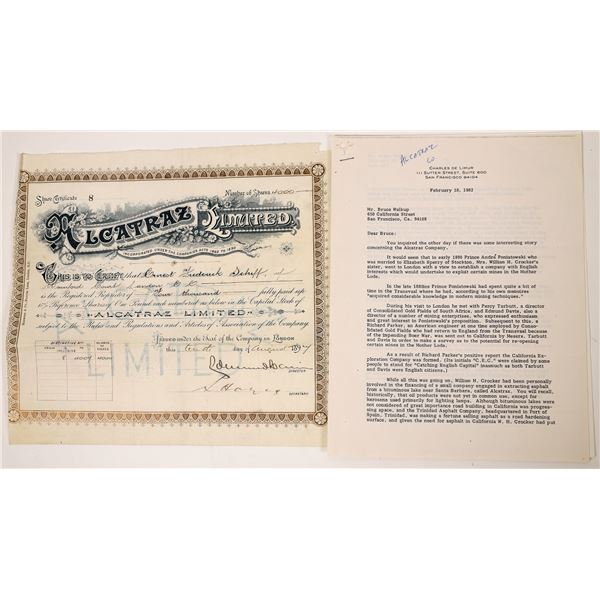 Share Certificate 8 Number of Shares 4000
ALCATRAZ LIMITED.
INCORPORATED UNDER THE COMPANIES ACTS 1862 TO 1890
This is to Certify that Ernest Frederick of
Court London E.C.
is the Registered Proprietor of Four thousand fully paid up
10% Preference Shares of One Pound each and numbered as below in the Capital Stock of
ALCATRAZ LIMITED
subject to the Rules and Regulations and Articles of Association of the Company
Given under the Seal of the Company in London
this day of August 1897
8 4000
LIMITED
DIRECTOR
SECRETARY
ALCATRAZ
CO
CHARLES DE LIMUR
111 SUTTER STREET, SUITE 600
SAN FRANCISCO 94104
February 18, 1982
Mr. Bruce Walkup
650 California Street
San Francisco, Ca. 94108
Dear Bruce:
You inquired the other day if there was some interesting story
concerning the Alcatraz Company.
It would seem that in early 1890 Prince André Poniatowski who
was married to Elizabeth Sperry of Stockton, Mrs. William H. Crocker's
sister, went to London with a view to establish a company with English
interests which would undertake to exploit certain mines in the Mother
Lode.
In the late 1880ies Prince Poniatowski had spent quite a bit of
time in the Transvaal where he had, according to his own memoires
"acquired considerable knowledge in modern mining techniques".
During his visit to London he met with Percy Tarbutt, a director
of Consolidated Gold Fields of South Africa, and Edmund Davis, also a
director of a number of mining enterprises, who expressed enthusiasm
and great interest in Poniatowski's proposition. Subsequent to this, a
Richard Parker, an American engineer at one time employed by Conso-
lidated Gold Fields who had returned to England from the Transvaal because of
the impending Boer War, was sent out to California by Messrs. Tarbutt
and Davis in order to make a survey as to the potential of various mines
in the Mother Lode.
As a result of Richard Parker's positive report the California Ex-
ploration Company was formed. (Its initials "C.E.C." were claimed by some
people to stand for "Catching English Capital" inasmuch as both Tarbutt
and Davis were English citizens.)
While all this was going on, William H. Crocker had been personally
involved in the financing of a small company engaged in extracting asphalt
from a bituminous lake near Santa Barbara, called Alcatraz. You will recall,
historically, that oil products were not yet in common use, except for
kerosene used primarily for lighting lamps. Although bituminous lakes were
not considered of great importance road building in California was progres-
sing space, and the Trinidad Asphalt Company, headquartered in Port of
Spain, Trinidad, was making a fortune selling asphalt as a road hardening
surface, and given the need for asphalt in California W. H. Crocker had put